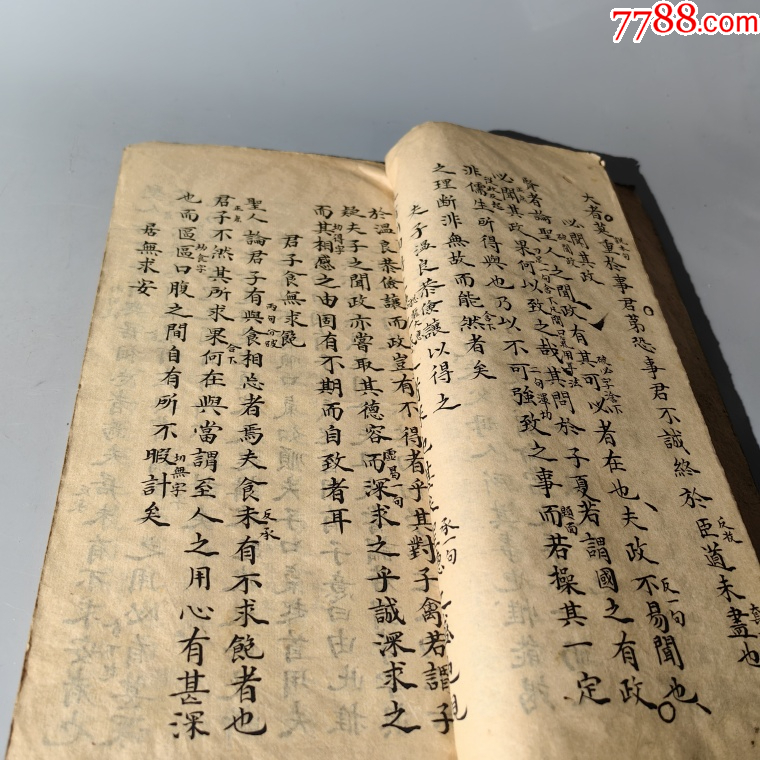 7788.com
大者莫重於事君第恐事君不誠終於臣道未盡也
反放
必聞其政
聖人之聞政有其可以者在也夫政不易聞也
反一句
必聞其政果何以致之哉其問於子夏若謂國之有政
非儒生所得與也乃以不可強致之事而若操其一定
題面
之理斷非無故而能然者矣
夫子溫良恭儉讓以得之
承一句
於溫良恭儉讓而政豈有不得者乎其對子禽若謂子
虛昌一句
疑夫子之聞政亦嘗取其德容而深求之乎誠深求之
切得字
而其相感之由固有不期而自致者耳
君子食無求飽
兩句分破
聖人論君子有與食相忘者焉夫食未有不求飽者也
反承
君子不然其所求果何在與當謂至人之用心有甚深
正承
合下
也而區區口腹之間自有所不暇計矣
切食字
切無字
居無求安